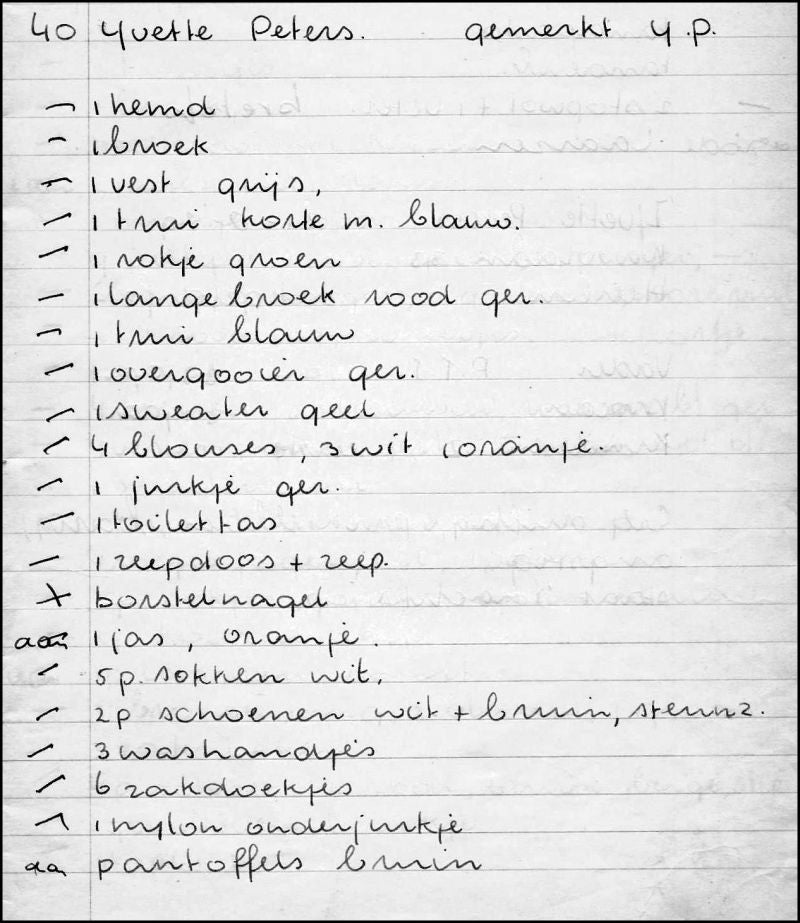 40 Yvette Peters. gemerkt y.p.
— 1 hemd
— 1 broek
— 1 vest grijs,
— 1 trui korte m. blauw.
— 1 rokje groen
— 1 lange broek rood ger.
— 1 trui blauw
— 1 overgooier ger.
— 1 sweater geel
— 4 blouses, 3 wit 1 oranje.
— 1 jurkje ger.
— 1 toilettas
— 1 zeepdoos + zeep.
x borstelnagel
aan 1 jas, oranje.
— 5 p. sokken wit.
— 2 p schoenen wit + bruin, steunz.
— 3 washandjes
— 6 zakdoekjes
— 1 nylon onderjurkje
aa pantoffels bruin